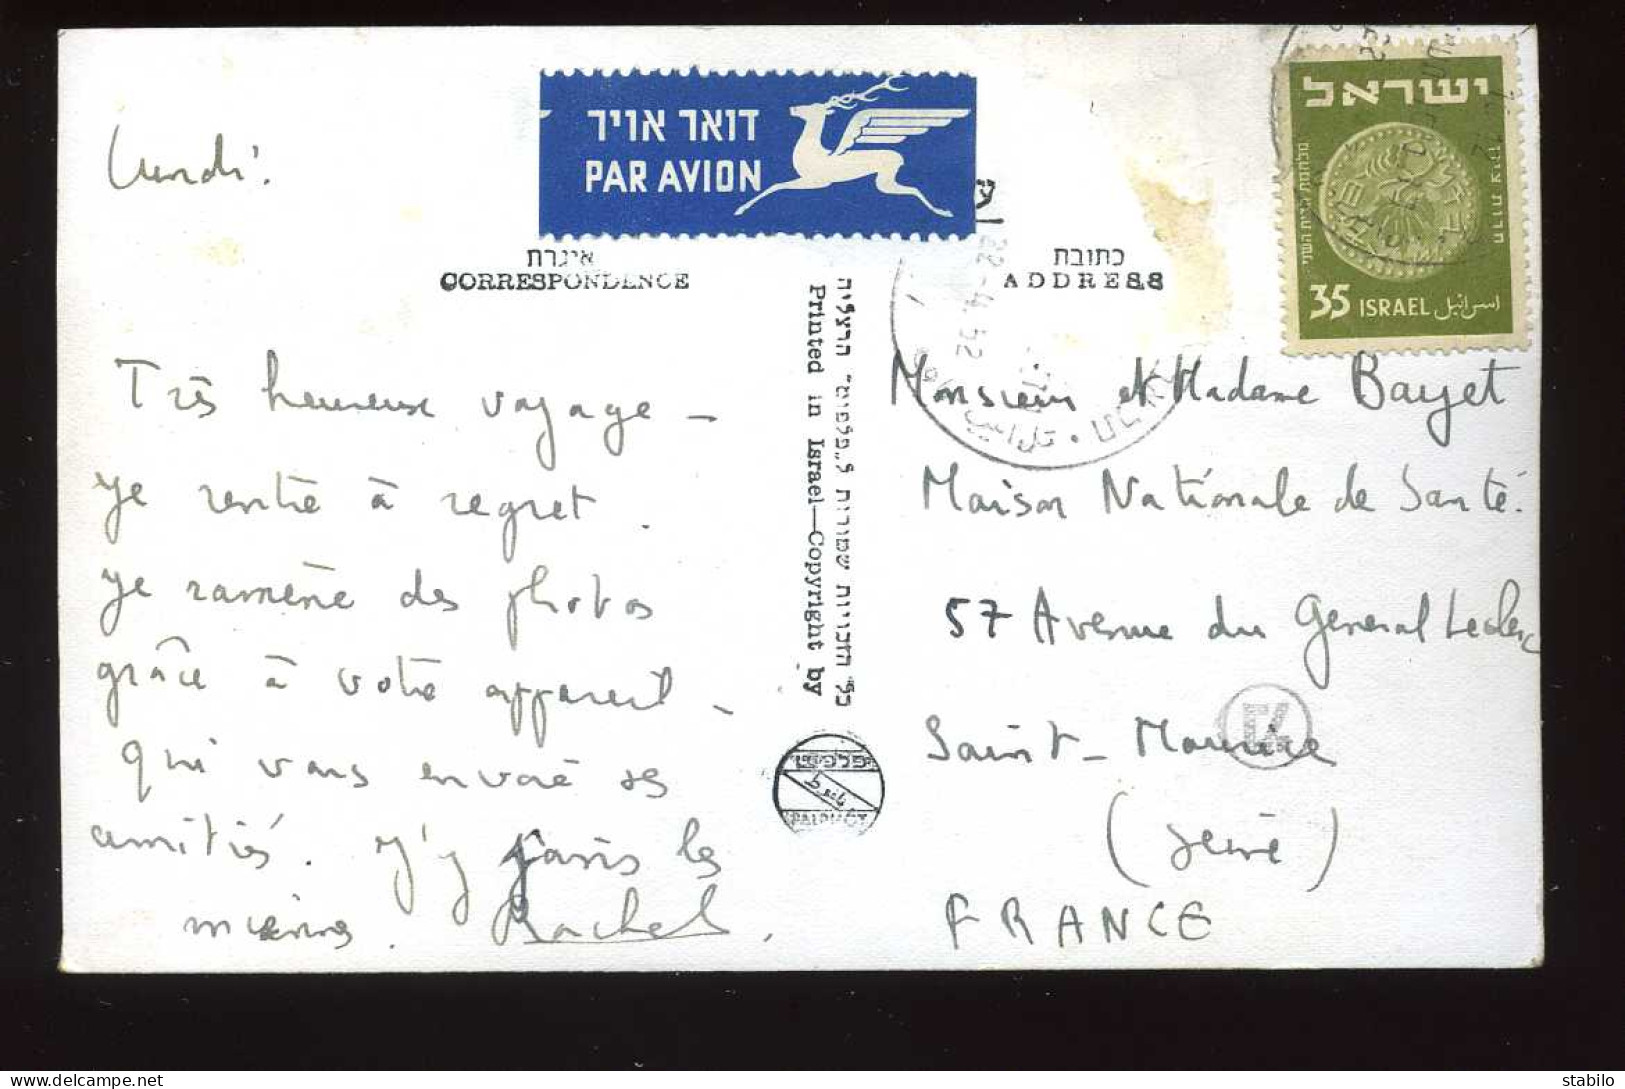 Lundi.
דואר אויר
PAR AVION
ישראל
מלחמת הבית השני
חרות ציון
35 ISRAEL اسرائيل
איגרת
CORRESPONDENCE
כתובת
ADDRESS
22-4.52
Très heureux voyage –
je rentre à regret.
je ramène des photos
grâce à votre appareil –
qui vous envoie ses
amitiés. J'y joins les
miennes. Rachel.
כל הזכויות שמורות ל„פלפוט" הרצליה
Printed in Israel—Copyright by
פלפוט
PALPHOT
Monsieur et Madame Bayet
Maison Nationale de Santé.
57 Avenue du Général Leclerc
Saint-Maurice
(Seine)
FRANCE